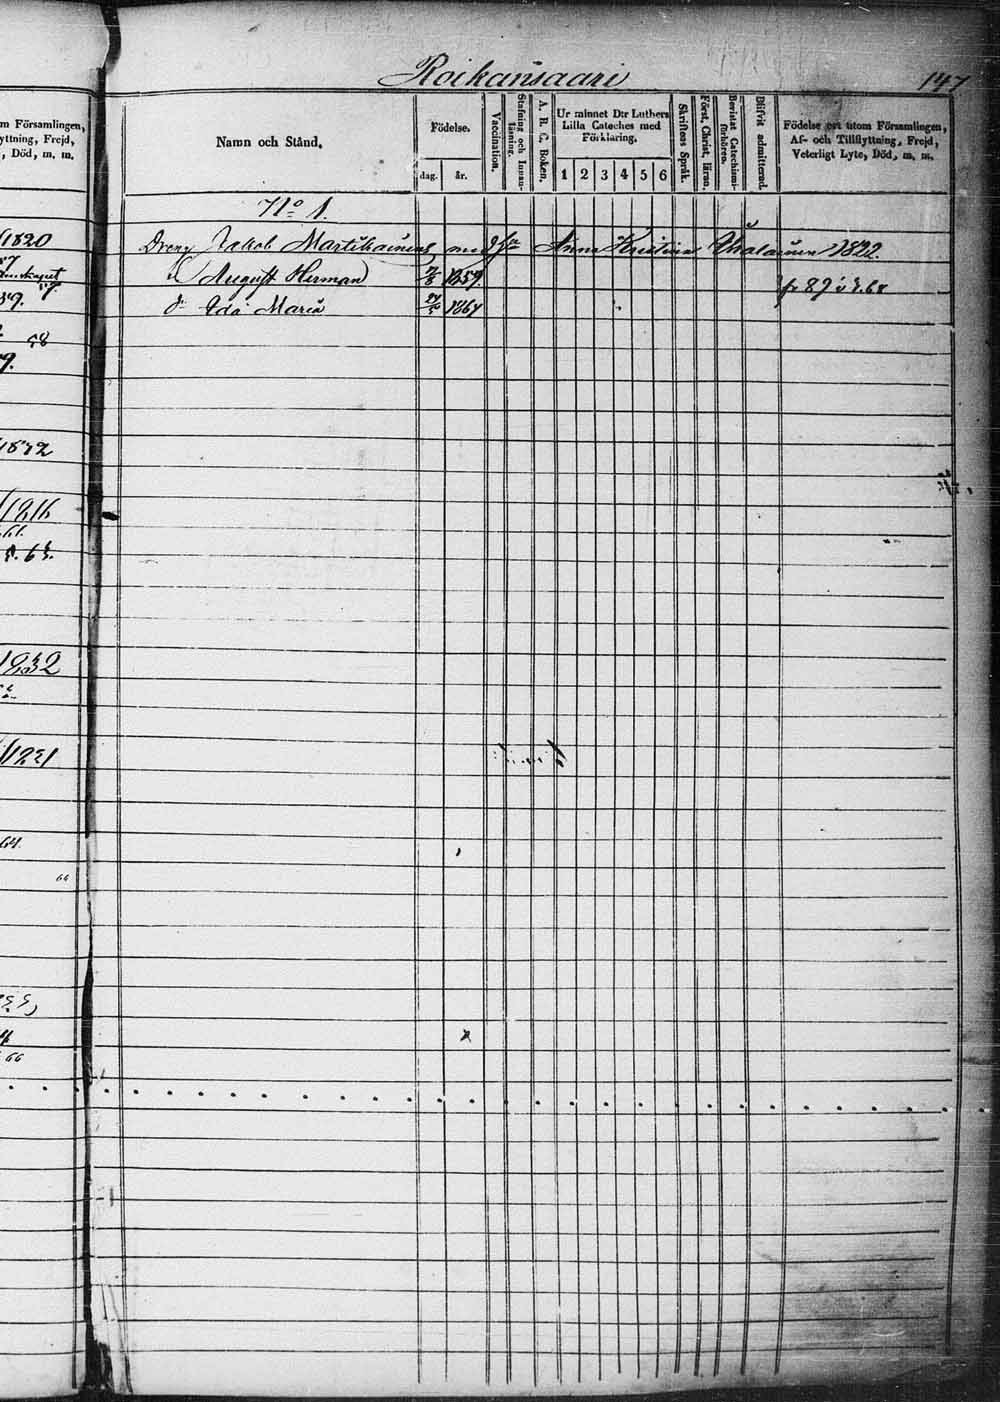 Roikansaari
147
m Församlingen,
yttning, Frejd,
, Död, m. m.
Namn och Stånd.
Födelse.
dag. år.
Vaccination.
Stafning och Innan-
läsning.
A. B. C. Boken.
Ur minnet Dtr Luthers
Lilla Cateches med
Förklaring.
1 2 3 4 5 6
Skriftens Språk.
Först. Christ. läran.
Bevistat Catechismi-
förhören.
Blifvit admitterad.
Födelse ort utom Församlingen,
Af- och Tillflyttning, Frejd,
Veterligt Lyte, Död, m. m.
No 1.
Dreng Jakob Martikainens, med hu Anna Kristina 1822.
August Herman 1859.
dr Ida Maria 1864
1820
59.
58
9.
1832
1816
1832
1821
64.
66
66